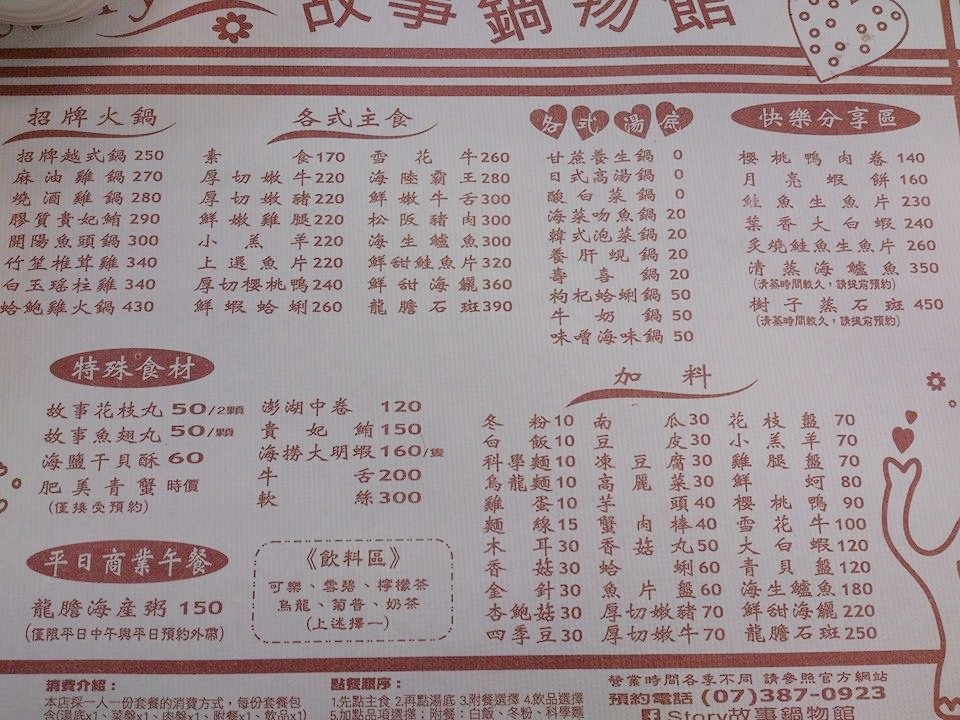 Story 故事鍋物館
招牌火鍋
招牌越式鍋 250
麻油雞鍋 270
燒酒雞鍋 280
膠質貴妃鮪 290
開陽魚頭鍋 300
竹笙推茸雞 340
白玉瑤柱雞 340
蛤鮑雞火鍋 430
各式主食
素食 170
厚切嫩牛 220
厚切嫩豬 220
鮮嫩雞腿 220
小羔羊 220
上選魚片 220
厚切櫻桃鴨 240
鮮蝦蛤蜊 260
雪花牛 260
海陸霸王 280
鮮嫩牛舌 300
松阪豬肉 300
海生鱸魚 300
鮮甜鮭魚片 320
鮮甜海鱺 360
龍膽石斑 390
各式湯底
甘蔗養生鍋 0
日式高湯鍋 0
酸白菜鍋 0
海菜吻魚鍋 20
韓式泡菜鍋 20
養肝蜆鍋 20
壽喜鍋 20
枸杞蛤蜊鍋 50
牛奶鍋 50
味噌海味鍋 50
快樂分享區
櫻桃鴨肉卷 140
月亮蝦餅 160
鮭魚生魚片 230
葉香大白蝦 240
炙燒鮭魚生魚片 260
清蒸海鱸魚 350
(清蒸時間較久，請提前預約)
樹子蒸石斑 450
(清蒸時間較久，請提前預約)
特殊食材
故事花枝丸 50/2顆
故事魚翅丸 50/顆
海鹽干貝酥 60
肥美青蟹 時價
(僅接受預約)
澎湖中卷 120
貴妃鮪 150
海撈大明蝦 160/隻
牛舌 200
軟絲 300
加料
冬粉 10
白飯 10
科學麵 10
烏龍麵 10
雞蛋 10
麵線 15
木耳 30
香菇 30
金針 30
杏鮑菇 30
四季豆 30
南瓜 30
豆皮 30
凍豆腐 30
高麗菜 30
芋頭 40
蟹肉棒 40
香菇丸 50
蛤蜊 60
魚片盤 60
厚切嫩豬 70
厚切嫩牛 70
花枝盤 70
小羔羊 70
雞腿盤 70
鮮蚵 80
櫻桃鴨 90
雪花牛 100
大白蝦 120
青貝盤 120
海生鱸魚 180
鮮甜海鱺 220
龍膽石斑 250
平日商業午餐
龍膽海產粥 150
(僅限平日中午與平日預約外帶)
《飲料區》
可樂、雪碧、檸檬茶
烏龍、菊普、奶茶
(上述擇一)
消費介紹：
本店採一人一份套餐的消費方式，每份套餐包
含(湯底x1、菜盤x1、肉盤x1、附餐x1、飲品x1)
點餐順序：
1.先點主食 2.再點湯底 3.附餐選擇 4.飲品選擇
5.加點品項選擇；附餐：白飯、冬粉、科學麵
營業時間各季不同 請參照官方網站
預約電話 (07)387-0923
Story故事鍋物館